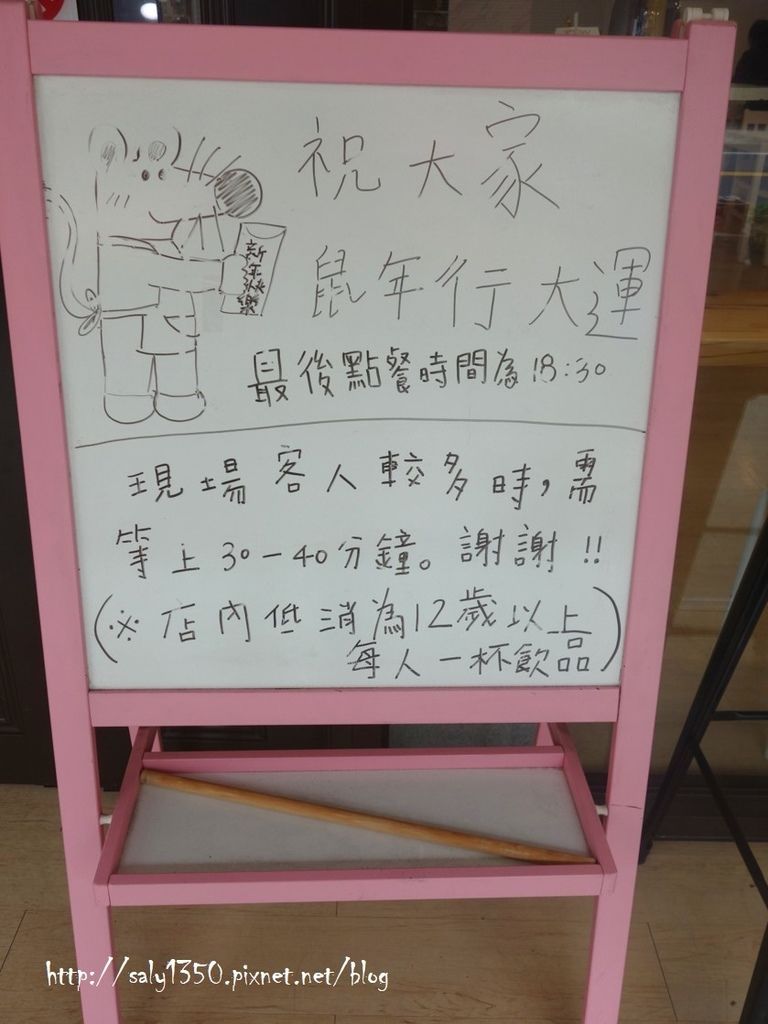 祝大家
鼠年行大運
新年快樂
最後點餐時間為18:30
現場客人較多時，需
等上30-40分鐘。謝謝!!
(※店內低消為12歲以上
每人一杯飲品)
http://saly1350.pixnet.net/blog